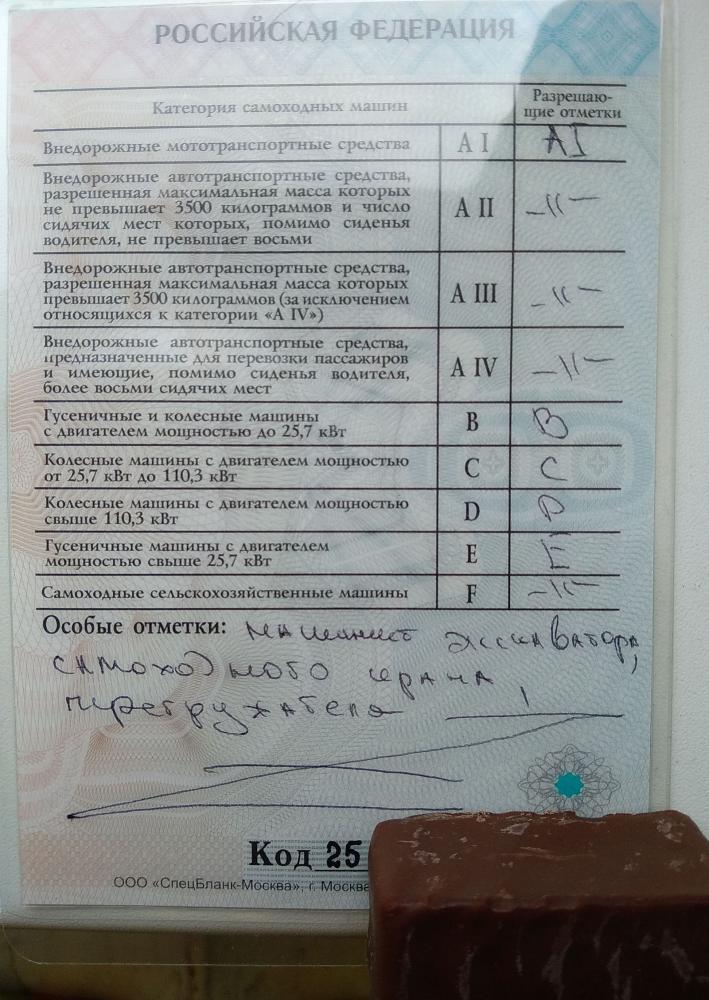 РОССИЙСКАЯ ФЕДЕРАЦИЯ
Категория самоходных машин
Разрешаю-
щие отметки
Внедорожные мототранспортные средства
A I
AI
Внедорожные автотранспортные средства,
разрешенная максимальная масса которых
не превышает 3500 килограммов и число
сидячих мест которых, помимо сиденья
водителя, не превышает восьми
A II
-//-
Внедорожные автотранспортные средства,
разрешенная максимальная масса которых
превышает 3500 килограммов (за исключением
относящихся к категории «A IV»)
A III
-//-
Внедорожные автотранспортные средства,
предназначенные для перевозки пассажиров
и имеющие, помимо сиденья водителя,
более восьми сидячих мест
A IV
-//-
Гусеничные и колесные машины
с двигателем мощностью до 25,7 кВт
B
B
Колесные машины с двигателем мощностью
от 25,7 кВт до 110,3 кВт
C
C
Колесные машины с двигателем мощностью
свыше 110,3 кВт
D
D
Гусеничные машины с двигателем
мощностью свыше 25,7 кВт
E
E
Самоходные сельскохозяйственные машины
F
-//-
Особые отметки: машинист экскаватора,
самоходного крана,
перегружателя
Код 25
ООО «СпецБланк-Москва», г. Москва